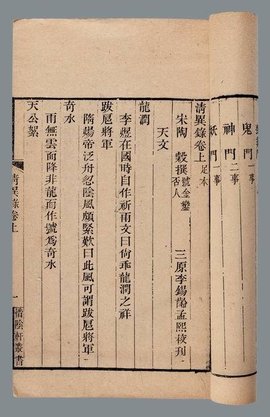 鬼門一事
神門二事
妖門一事
清異錄卷上足本
宋陶 穀撰號金鑾否人 三原李錫齡孟熙校刊
天文
龍潤
李煜在國時自作祈雨文曰尚乖龍潤之祥
跋扈將軍
隋煬帝泛舟忽陰風頗緊歎曰此風可謂跋扈將軍
奇水
雨無雲而降非龍而作號為奇水
天公絮
清異錄卷上 一 惜陰軒叢書